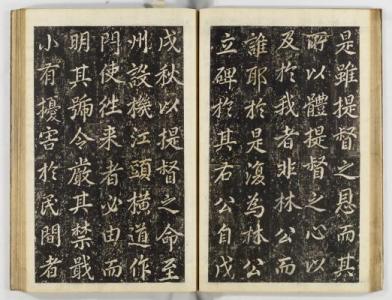 是雖提督之恩而其
所以體提督之心以
及於我者非林公而
誰耶於是復為林公
立碑於其右公自戊
戌秋以提督之命至
州設機江頭橫道作
門使往来者必由而
明其號令嚴其禁戢
小有擾害於民間者